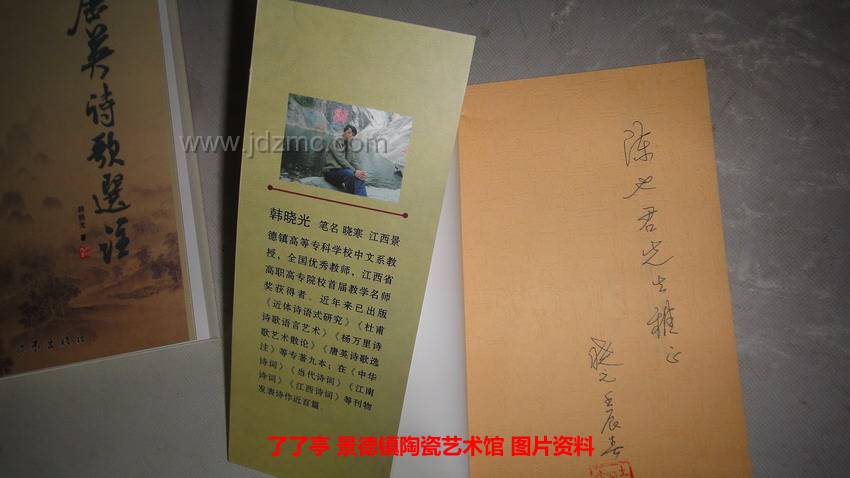 唐英诗歌選注
韩晓光 著
作家出版社
www.jdzmc.com
韩晓光 笔名 晓寒 江西景
德镇高等专科学校中文系教
授，全国优秀教师，江西省
高职高专院校首届教学名师
奖获得者．近年来已出版
《近体诗语式研究》《杜甫
诗歌语言艺术》《杨万里诗
歌艺术散论》《唐英诗歌选
注》等专著九本；在《中华
诗词》《当代诗词》《江南
诗词》《江西诗词》等刊物
发表诗作近百篇．
陈 君先生雅正
晓光 壬辰春
了了亭 景德镇陶瓷艺术馆 图片资料